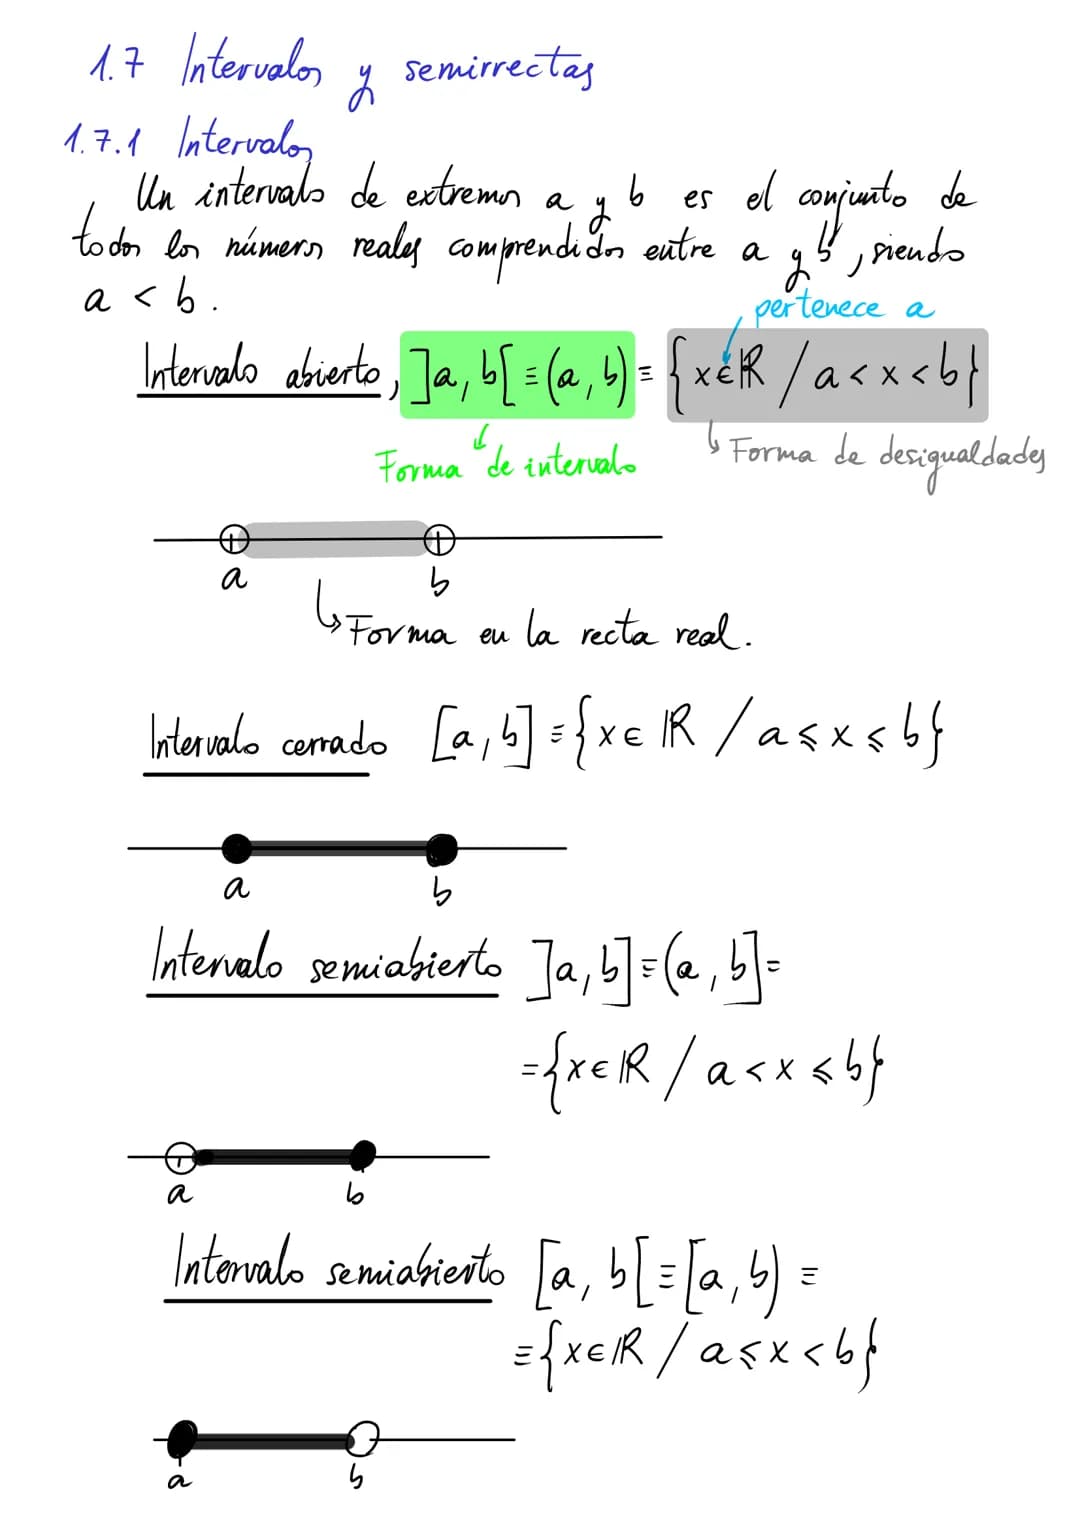 1.7 Intervalos y semirrectas
1.7.1 Intervalos
Un intervalo de extremos a y b es el conjunto de
todos los números reales comprendidos entre a y b, siendo
a < b.
pertenece a
Intervalo abierto, ]a, b[ ≡ (a, b) ≡ {x ∈ ℝ / a < x < b}
Forma de intervalo
Forma de desigualdades
a b
Forma en la recta real.
Intervalo cerrado [a, b] ≡ {x ∈ ℝ / a ≤ x ≤ b}
a b
Intervalo semiabierto ]a, b] ≡ (a, b] =
= {x ∈ ℝ / a < x ≤ b}
a b
Intervalo semiabierto [a, b[ ≡ [a, b) ≡
≡ {x ∈ ℝ / a ≤ x < b}
a b